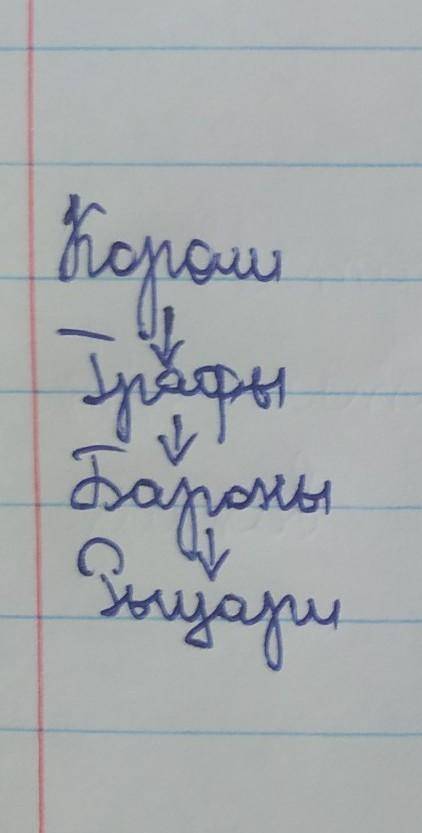 Короли
↓
Графы
↓
Бароны
↓
Рыцари